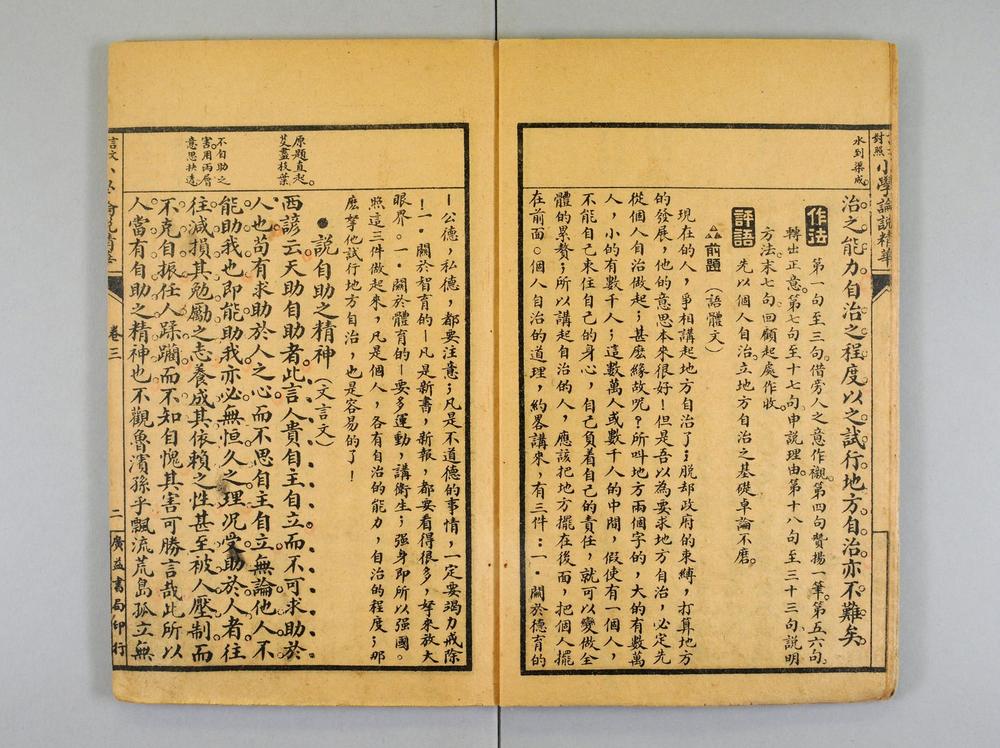 小學論說精華
對照
水到渠成。
治之能力。自治之程度。以之試行地方自治。亦不難矣。
作法
第一句至三句。借旁人之意作襯。第四句贊揚一筆。第五六句。
轉出正意。第七句至十七句。申說理由。第十八句至三十三句。說明
方法。末七句。回顧起處作收。
評語
先以個人自治。立地方自治之基礎。卓論不磨。
前題(語體文)
現在的人,爭相講起地方自治了;脫却政府的束縛,打算地方
的發展,他的意思本來很好!但是吾以為要求地方自治,必定先
從個人自治做起;甚麼緣故呢?所叫地方兩個字的,大的有數萬
人,小的有數千人;這數萬人或數千人的中間,假使有一個人,
不能自己來住自己的身心,自己負着自己的責任,就可以變做全
體的累贅;所以講起自治的人,應該把地方擺在後面,把個人擺
在前面。個人自治的道理,約畧講來,有三件:一.關於德育的
—公德,私德,都要注意;凡是不道德的事情,一定要竭力戒除
!二.關於智育的—凡是新書,新報,都要看得很多,好來放大
眼界。一.關於體育的—要多運動,講衛生;強身即所以強國。
照這三件做起來,凡是個人,各有自治的能力,自治的程度;那
麽拏他試行地方自治,也是容易的了!
原題直起。
芟盡枝葉
不自助之
害。用兩層
意思抉透
說自助之精神(文言文)
西諺云。天助自助者。此言人貴自主自立。而不可求助於
人也。苟有求助於人之心。而不思自主自立。無論他人不
能助我也。即能助我。亦必無恒久之理。況受助於人者。往
往減損其勉勵之志。養成其依賴之性。甚至被人壓制而
不克自振。任人蹂躪而不知自愧。其害可勝言哉。此所以
人當有自助之精神也。不觀魯濱孫乎。飄流荒島。孤立無
卷三
二
廣益書局印行